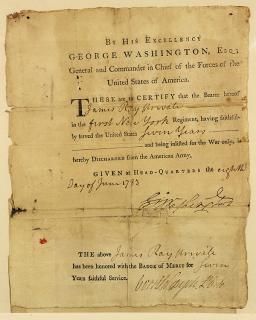 By His EXCELLENCY
GEORGE WASHINGTON, Esq;
General and Commander in Chief of the Forces of the
United States of America.
THESE are to CERTIFY that the Bearer hereof
James Ray Private
in the first New York Regiment, having faithfully
served the United States Seven Years
and being inlisted for the War only, is
hereby DISCHARGED from the American Army.
GIVEN at HEAD-QUARTERS the eighth
Day of June 1783
GWashington
THE above James Ray Private
has been honored with the BADGE of MERIT for Seven
Years faithful Service.